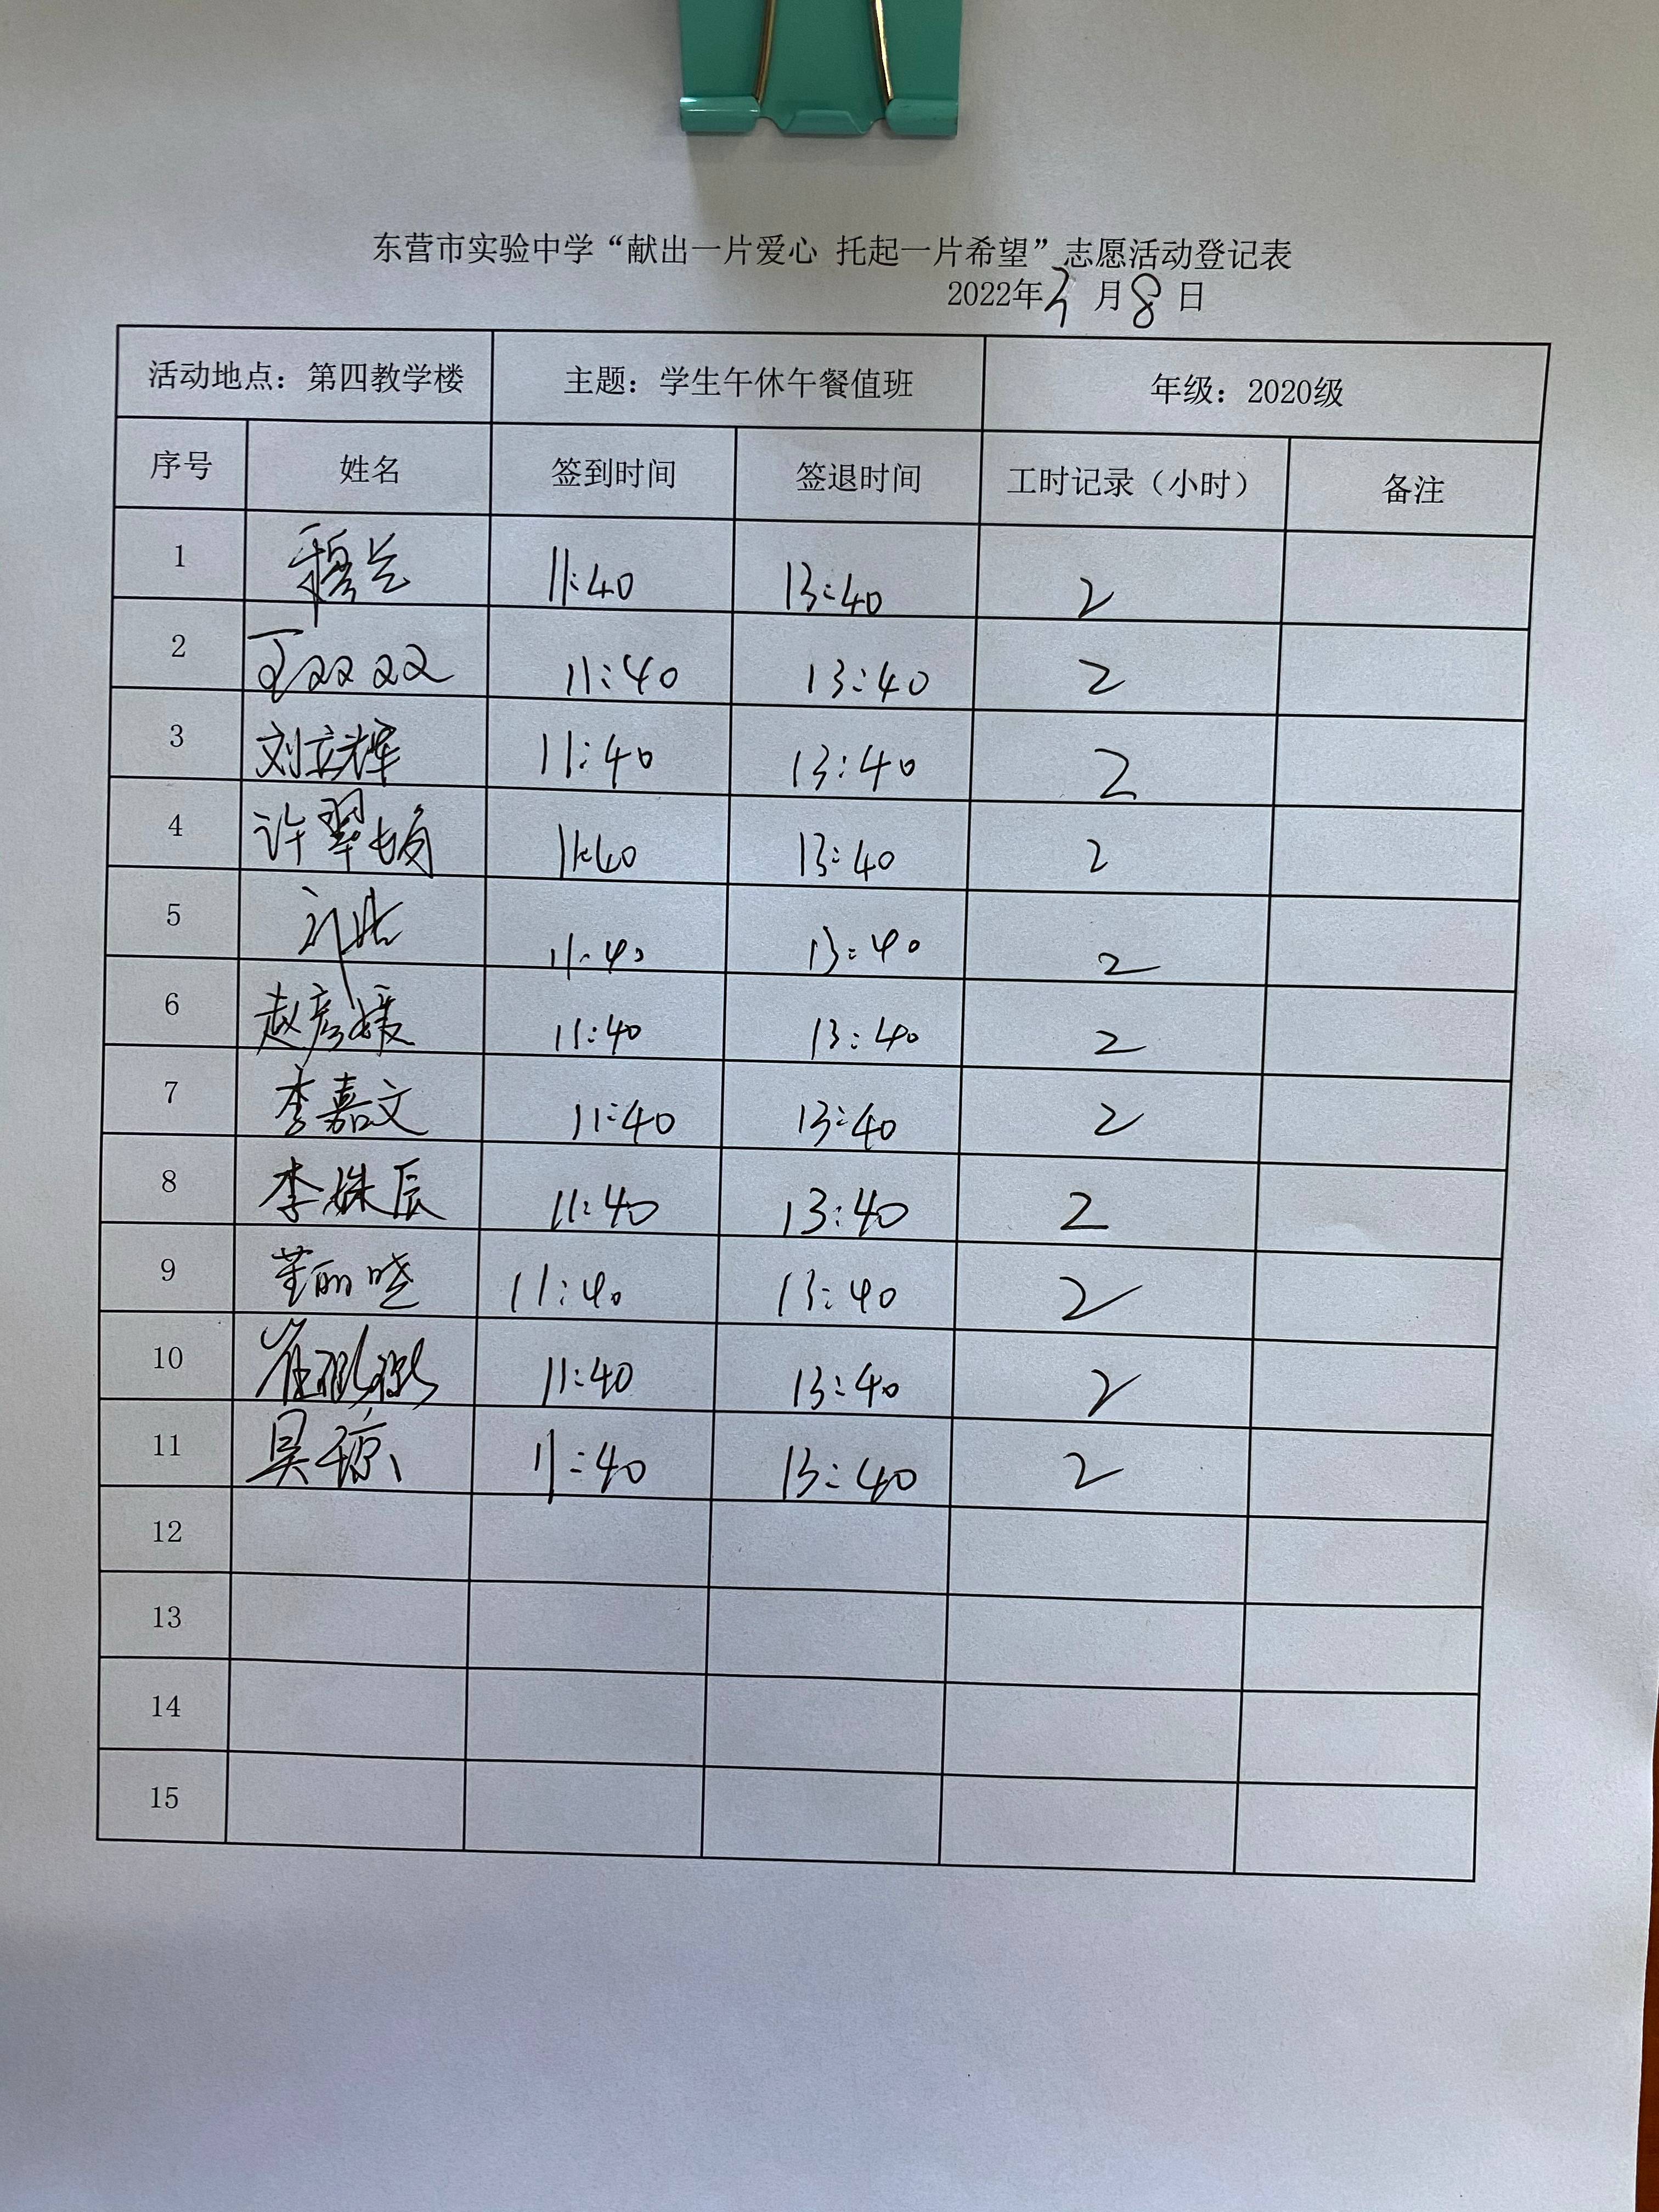 东营市实验中学“献出一片爱心 托起一片希望”志愿活动登记表
2022年3月8日
活动地点：第四教学楼 主题：学生午休午餐值班 年级：2020级
序号 姓名 签到时间 签退时间 工时记录（小时） 备注
1 穆兰 11:40 13:40 2
2 11:40 13:40 2
3 刘立辉 11:40 13:40 2
4 许翠娟 11:40 13:40 2
5 11:40 13:40 2
6 赵彦媛 11:40 13:40 2
7 李嘉文 11:40 13:40 2
8 李姝辰 11:40 13:40 2
9 董丽晓 11:40 13:40 2
10 崔 11:40 13:40 2
11 吴琼 11:40 13:40 2
12
13
14
15